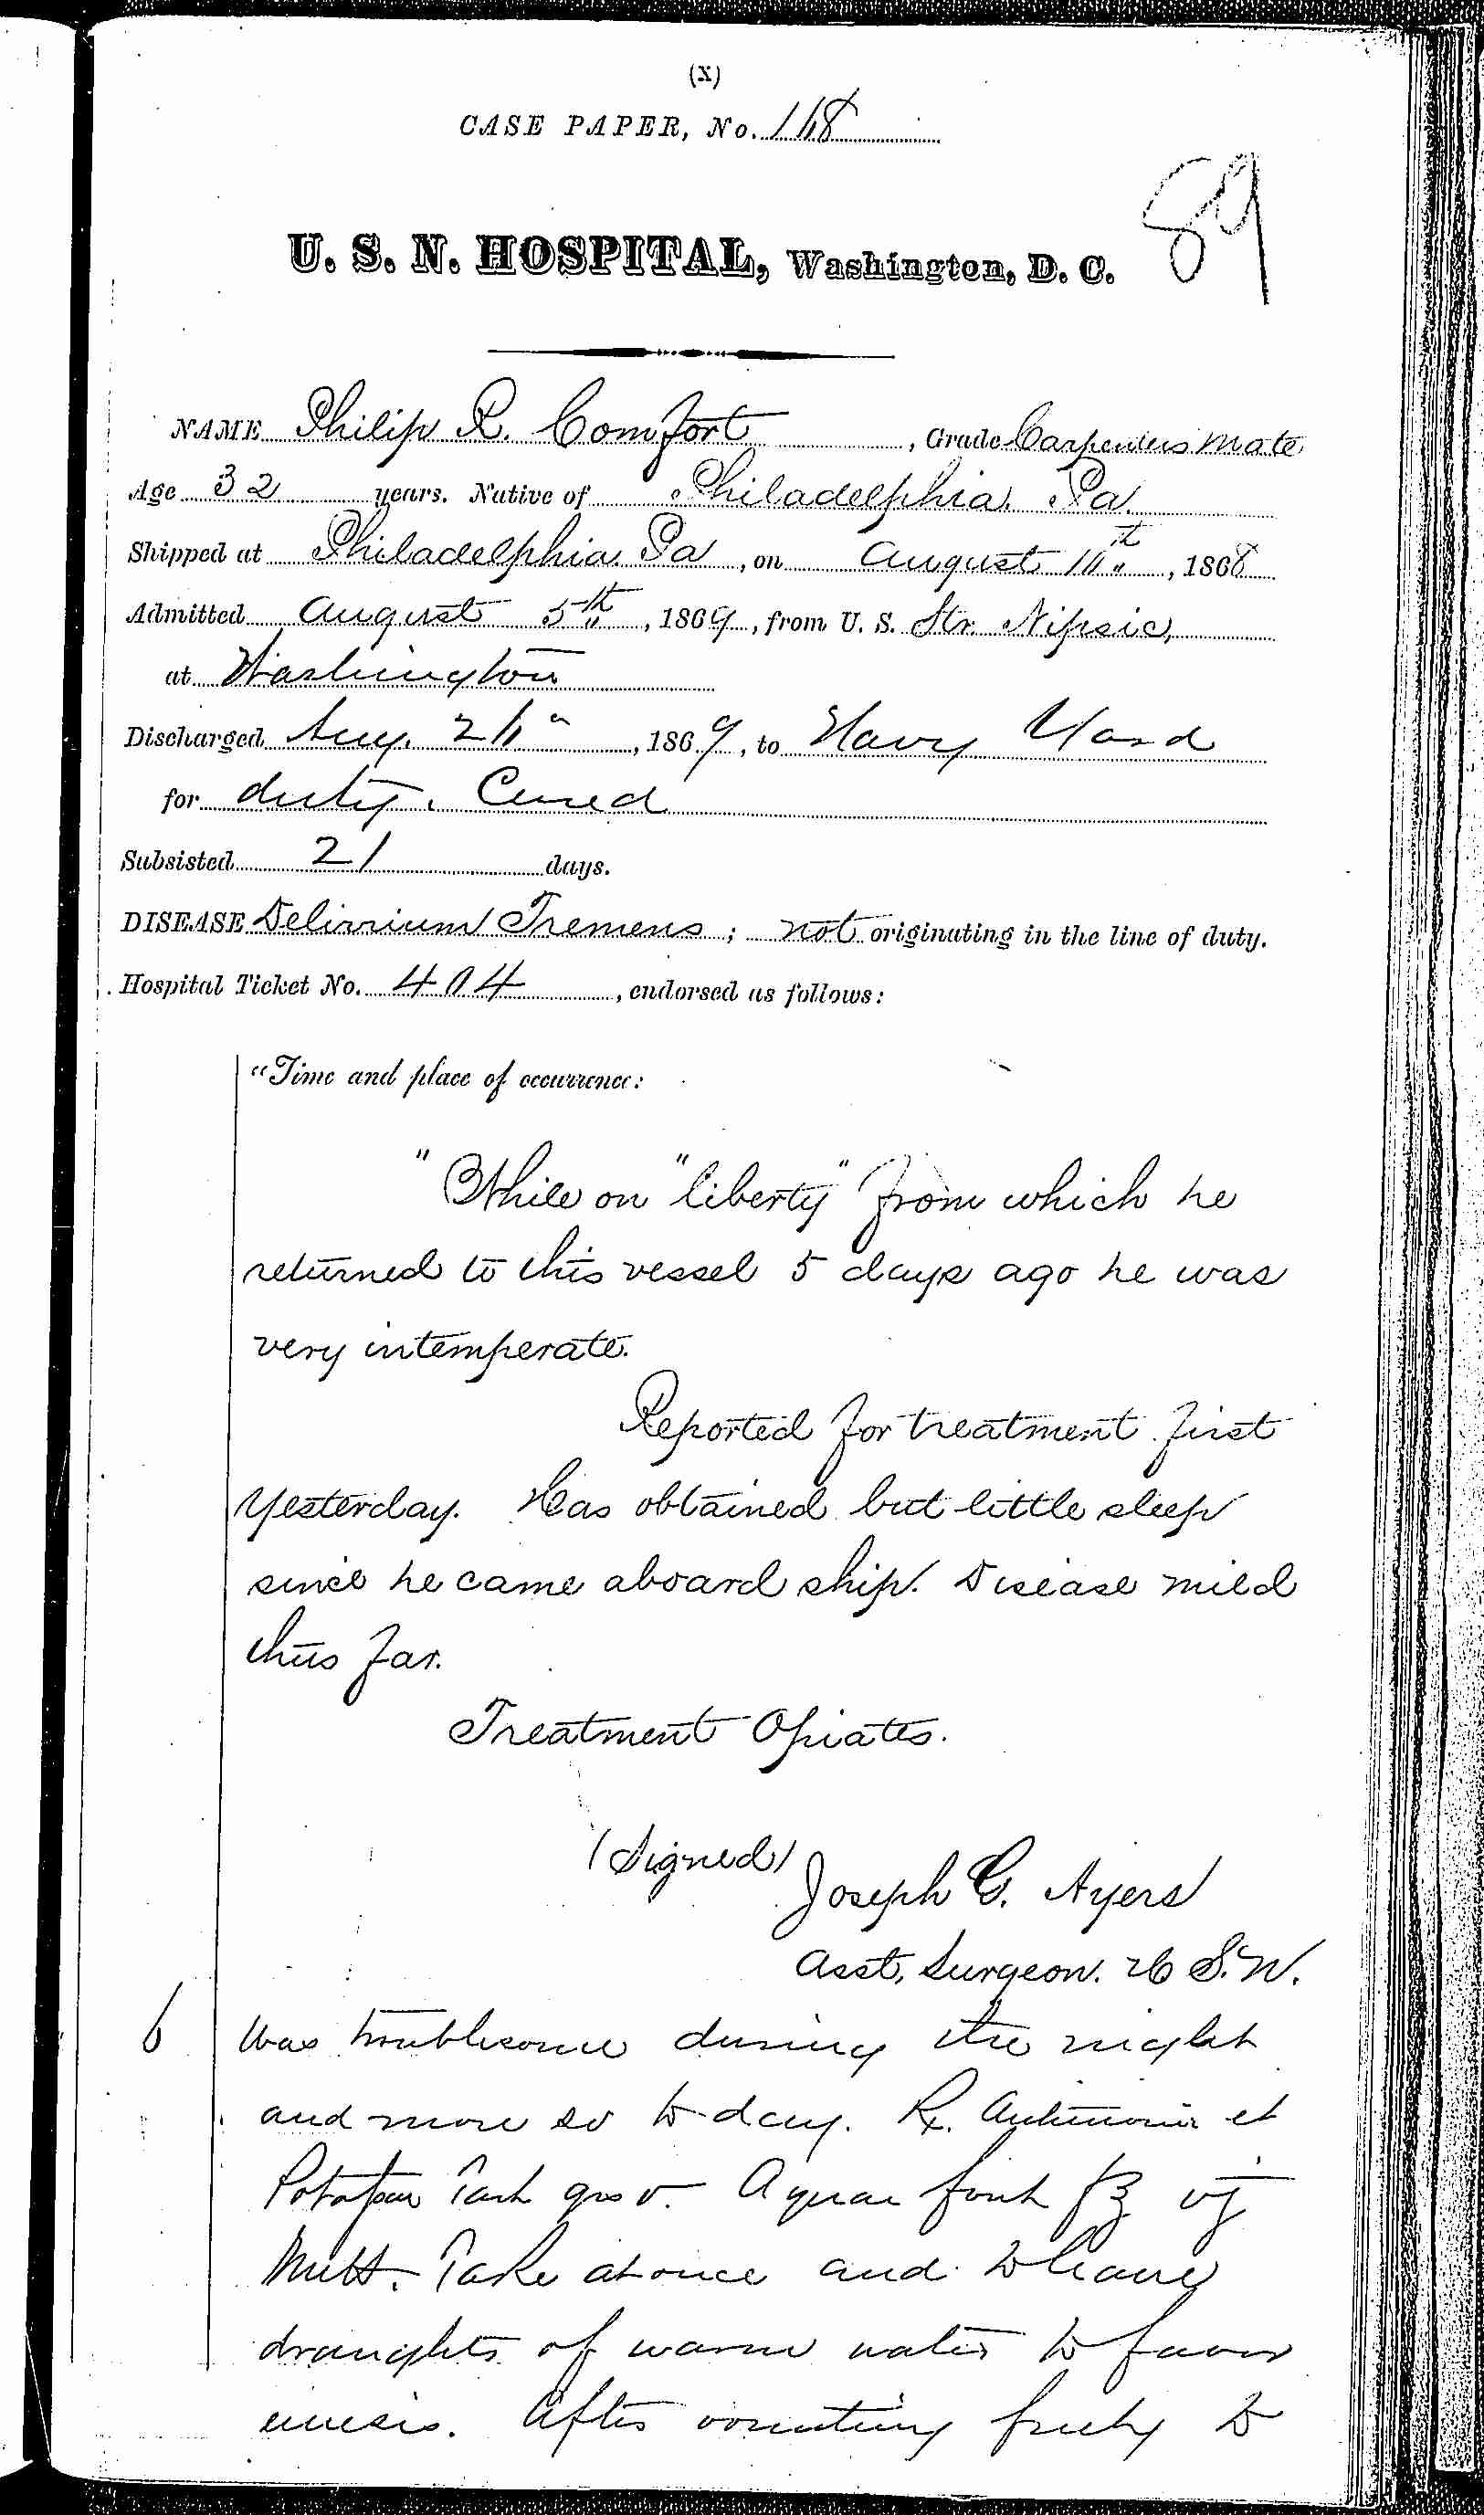 (X)
CASE PAPER, No. 148
89
U. S. N. HOSPITAL, Washington, D. C.
NAME Philip R. Comfort, Grade Carpenters Mate
Age 32 years. Native of Philadelphia. Pa.
Shipped at Philadelphia. Pa, on August 10th, 1868
Admitted August 5th, 1869, from U. S. Str. Nipsic,
at Washington
Discharged Aug. 26", 1869, to Navy Yard
for duty. Cured
Subsisted 21 days.
DISEASE Delirrium Tremens; not originating in the line of duty.
Hospital Ticket No. 404, endorsed as follows:
"Time and place of occurrence:
"While on "liberty" from which he
returned to this vessel 5 days ago he was
very intemperate.
Reported for treatment first
yesterday. Has obtained but little sleep
since he came aboard ship. Disease mild
thus far.
Treatment Opiates.
(Signed)
Joseph G. Ayers
Asst. Surgeon. U.S.N.
6 Was troublesome during the night
and more so to day. Rx. Antimonii et
Potassae Tart grs v. Aquae font f℥ vj
Mitt. Take at once and to have
draughts of warm water to favor
emesis. After vomiting freely to